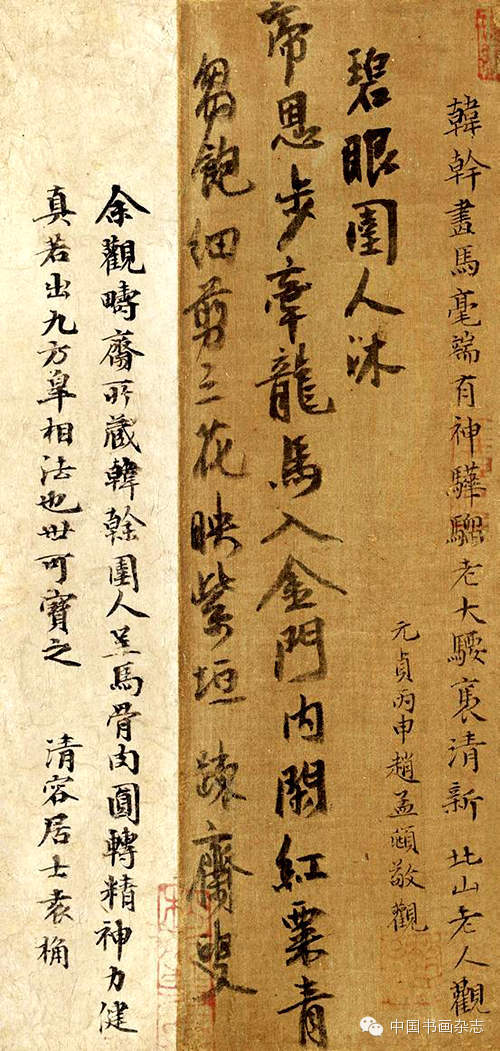 韓幹畫馬毫端有神驊騮老大騕褭清新北山老人觀
元貞丙申趙孟頫敬觀
碧眼圉人沐
帝恩步牽龍馬入金門内閑紅粟青
芻飽細剪三花映紫垣疎齋叟
余觀疇齋所藏韓幹圉人呈馬骨肉圓轉精神力健
真若出九方皐相法也世可寶之
清容居士袁桷
中国书画杂志